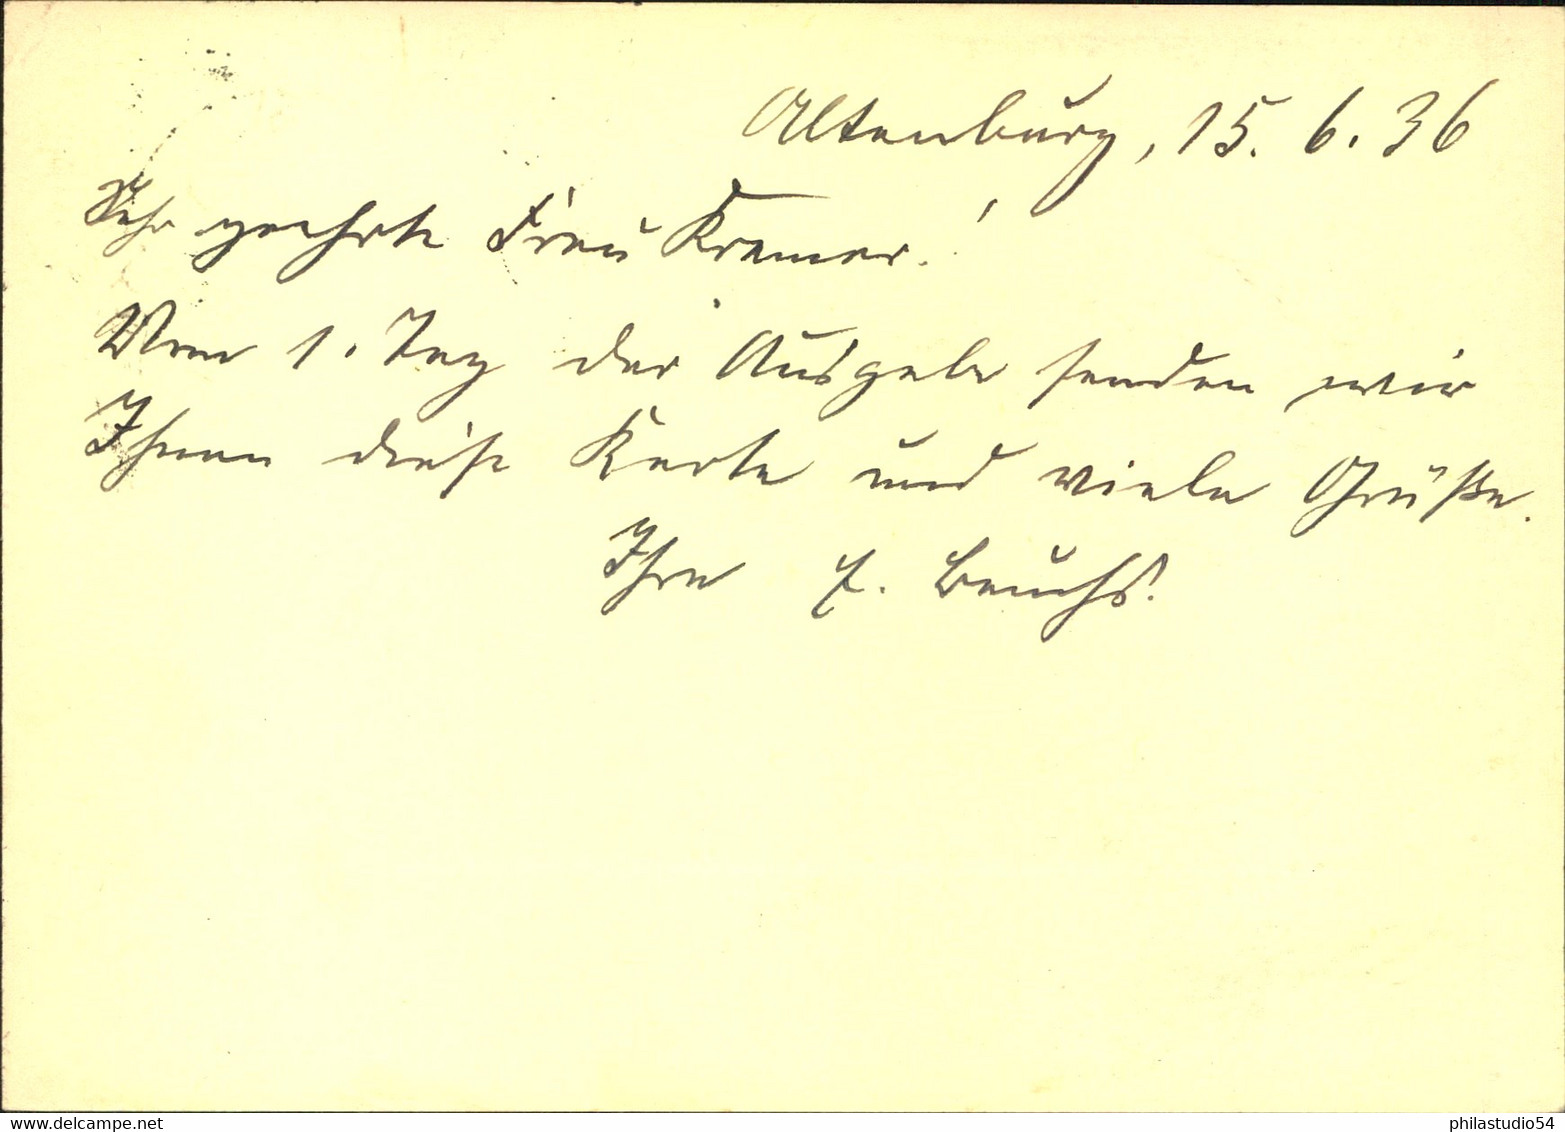 Altenburg, 15. 6. 36
Sehr geehrte Frau Kramer!
Vom 1. Tag der Ausgabe senden wir
Ihnen diese Karte und viele Grüße.
Ihre
delcampe.net
philastudio54